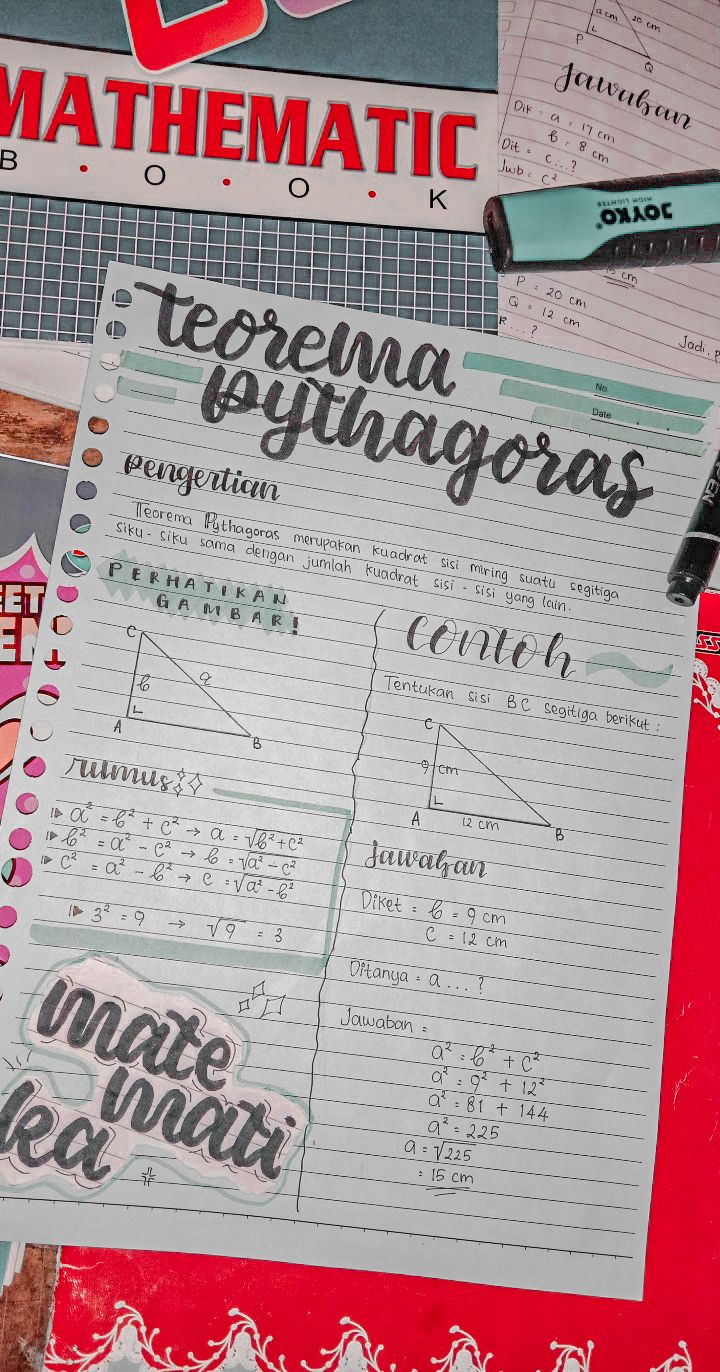 MATHEMATIC
BOOK
12 cm
20 cm
P
Q
Jawaban
Dik = a = 17 cm
b = 8 cm
Dit = c...?
Jwb = c²
JOYKO
HIGH LIGHTER
15 cm
P = 20 cm
Q = 12 cm
R...?
Jadi, p
teorema
pythagoras
No.
Date
pengertian
Teorema Pythagoras merupakan kuadrat sisi miring suatu segitiga
siku-siku sama dengan jumlah kuadrat sisi-sisi yang lain.
PERHATIKAN
GAMBAR!
C
b
a
A
B
rumus
a² = b² + c² → a = √b²+c²
b² = a² - c² → b = √a² - c²
c² = a² - b² → c = √a² - b²
3² = 9 → √9 = 3
mate
mati
ka
contoh
Tentukan sisi BC segitiga berikut :
C
9 cm
A
12 cm
B
Jawaban
Diket = b = 9 cm
c = 12 cm
Ditanya = a...?
Jawaban =
a² = b² + c²
a² = 9² + 12²
a² = 81 + 144
a² = 225
a = √225
= 15 cm